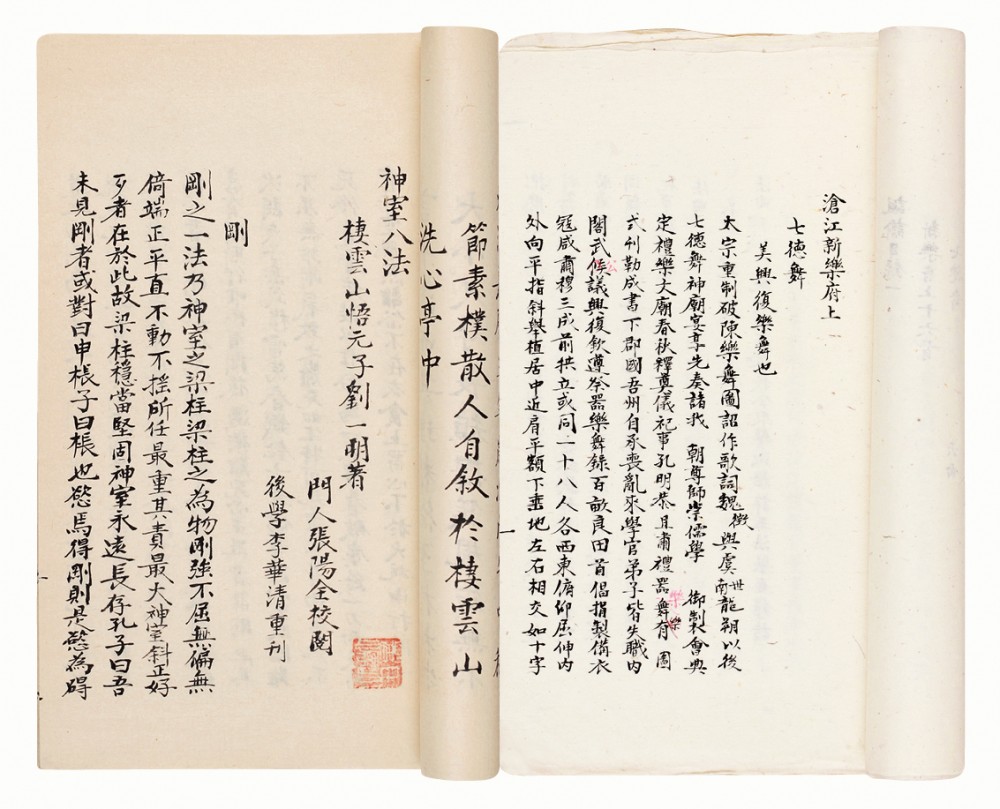 滄江新樂府上
七德舞
美興復樂舞也
太宗重制破陳樂舞圖詔作歌詞魏徵與虞世南龍朔以後
七德舞神廟宴享先奏諸我 朝尊師崇儒學 御製會典
定禮樂文廟春秋釋奠儀祀事孔明恭且肅禮器舞有圖
式刊勒成書下郡國吾州自承喪亂來學官弟子皆失職內
閣武侯議興復欽遵祭器樂舞錄百畝良田首倡捐製備衣
冠咸肅穆三成前拱立或同二十八人各西東俯仰屈伸內
外向平指斜舉植居中近肩平額下垂地左右相交如十字
節素樸散人自敘於棲雲山
洗心亭中
神室八法
棲雲山悟元子劉一明著
門人張陽全校閱
後學李華清重刊
剛
剛之一法乃神室之梁柱梁柱之為物剛強不屈無偏無
倚端正平直不動不搖所任最重其責最大神室斜正好
歹者在於此故梁柱穩當堅固神室永遠長存孔子曰吾
未見剛者或對曰申棖子曰棖也慾焉得剛則是慾為碍